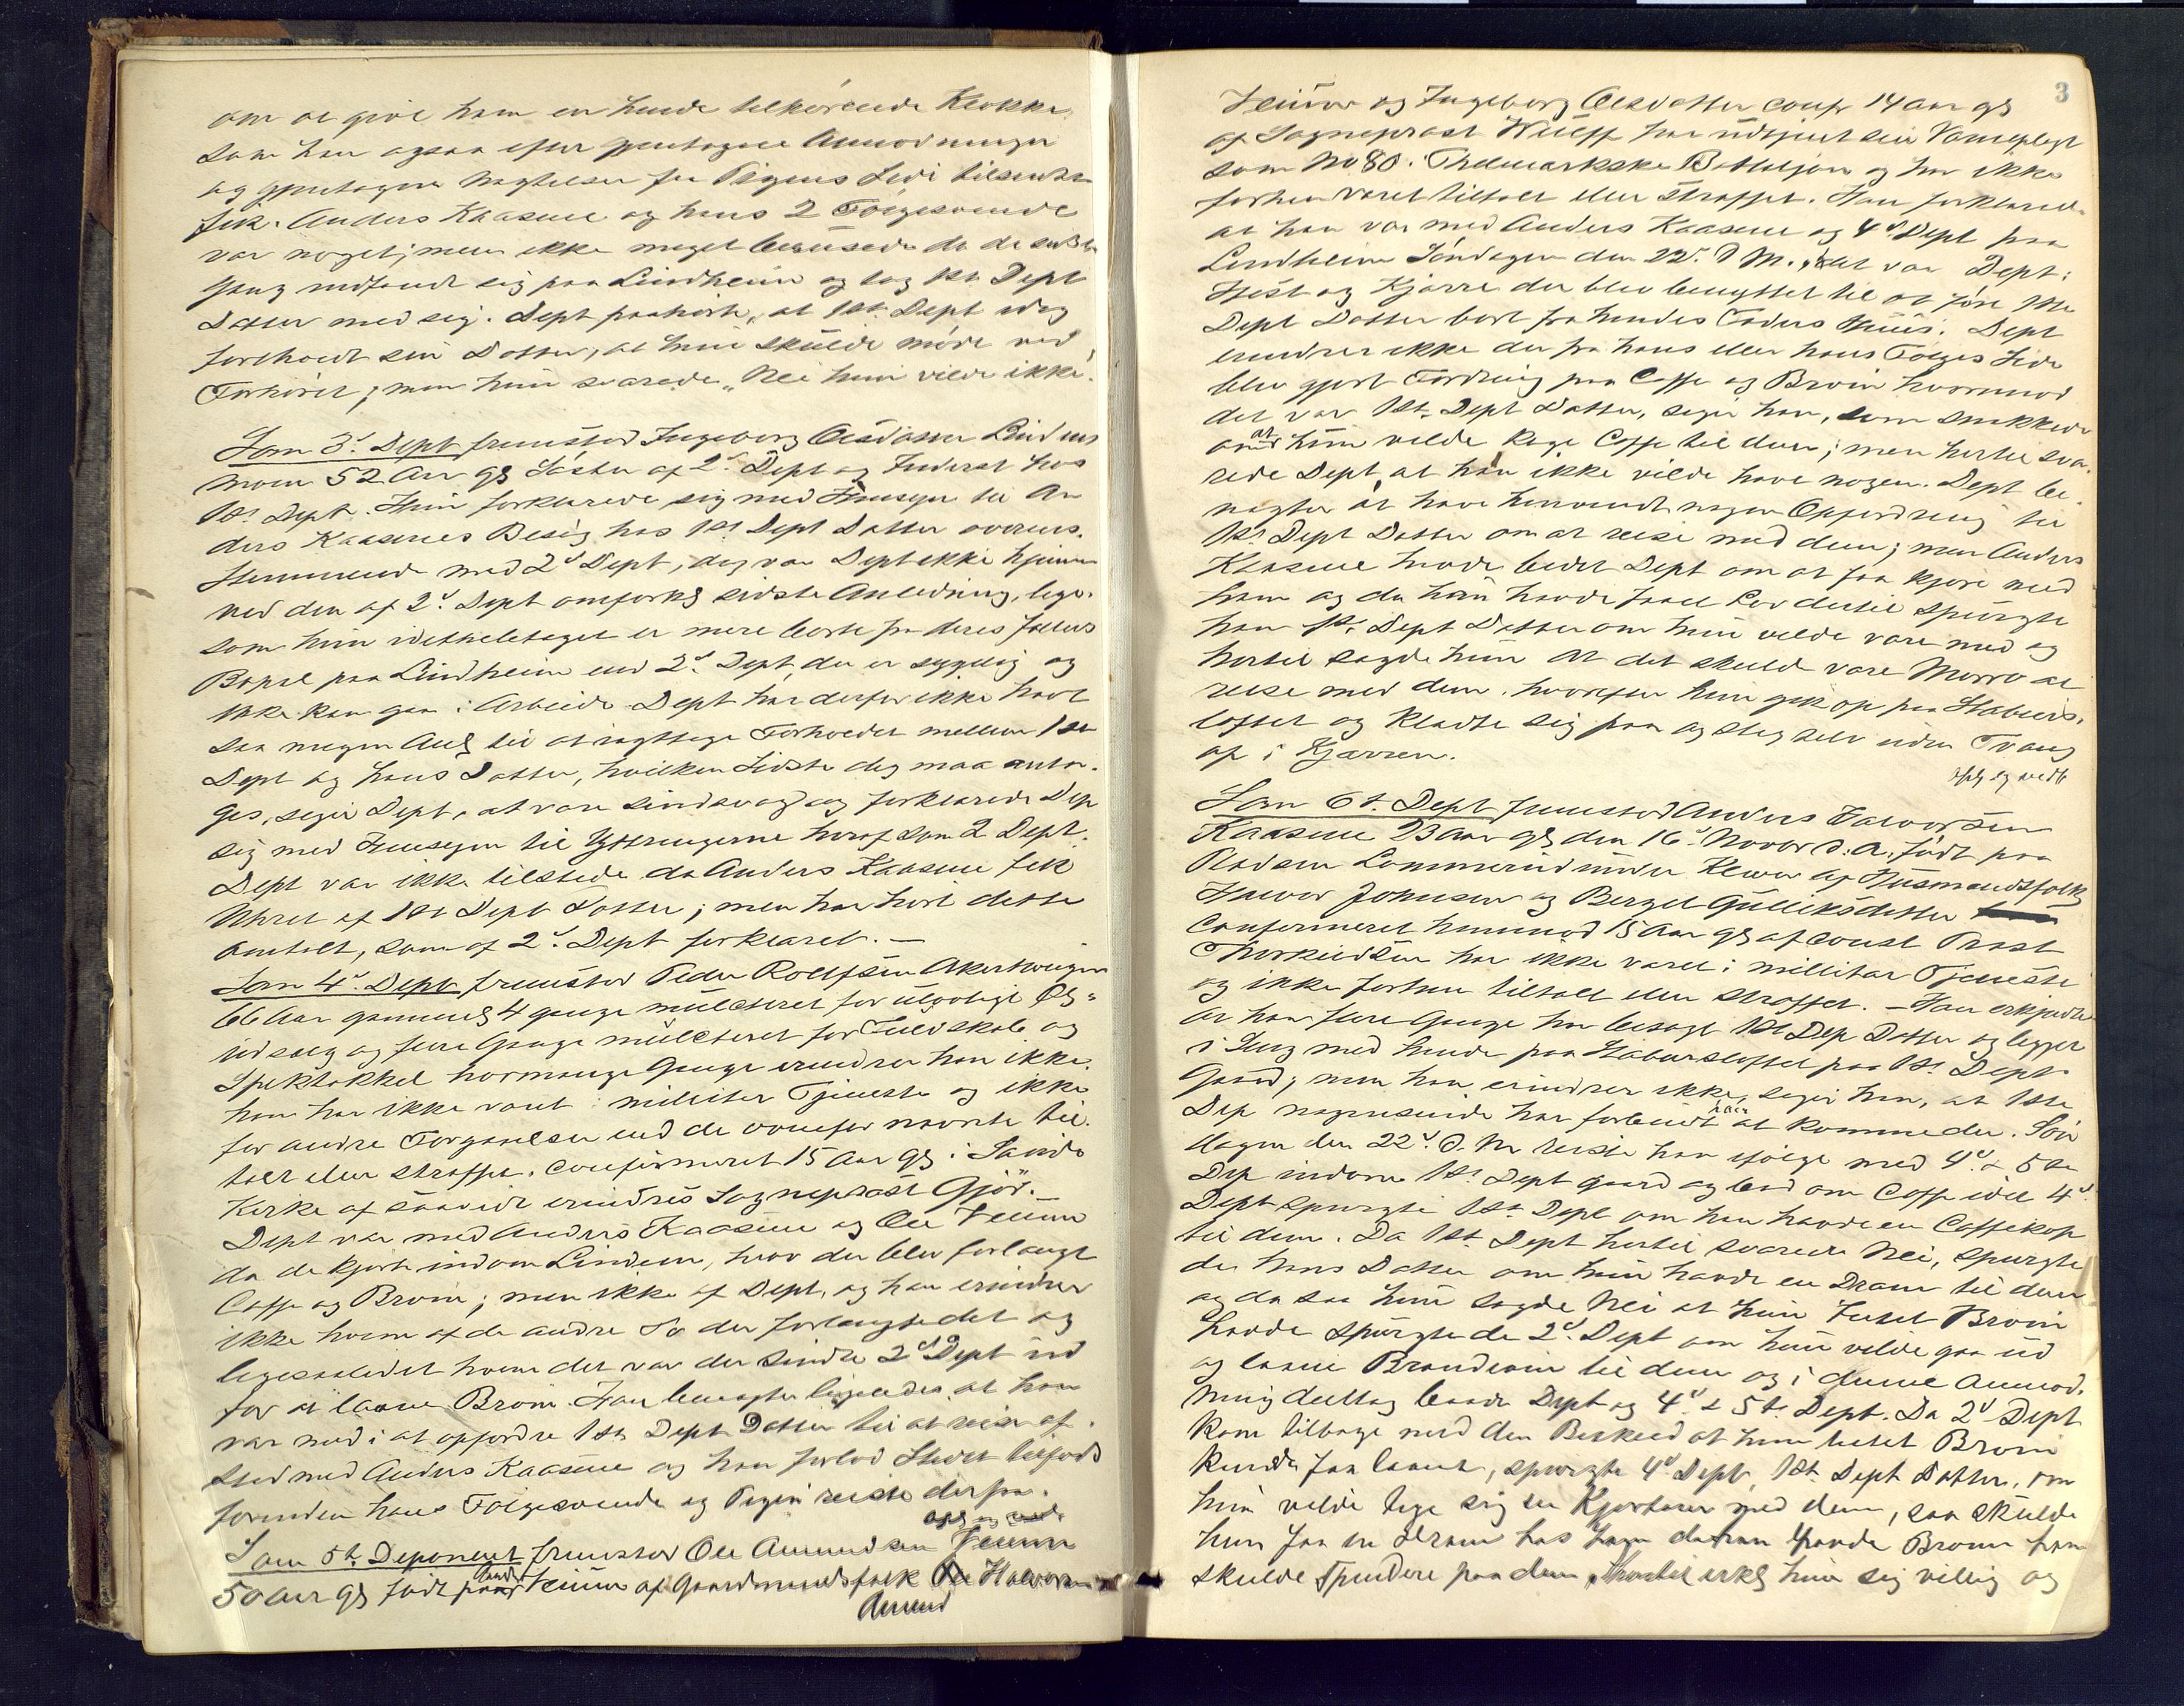 om at give ham en hende tilhørende Klokke,
som han ogsaa efter gjentagne Anmodninger
og gjentagne Nægtelser fra Pigens Side tilsidst
fik. Anders Kaasene og hans 2 Følgesvende
var noget, men ikke meget berusede da de sidste
Gang indfandt sig paa Lindheim og tog 1st Dept
Datter med sig. Dept paahørte, at 1st. Dept idag
foreholdt sin Datter, at hun skulde møde ved
Forhøret, men hun svarede „Nei hun vilde ikke".
Som 3d. Dept fremstod Ingeborg Olsdatter Lind
moen 52 Aar gl Søster af 2d Dept og Inderst hos
1st. Dept. Hun forklarede sig med Hensyn til An
ders Kaasenes Besøg hos 1st Dept Datter overens.
stemmende med 2d Dept, dog var Dept ikke hjemme
ved den af 2d. Dept omfork sidste Anledning, lige.
som hun idetheletaget er mere borte fra deres fælles
Bopæl paa Lindheim end 2d. Dept, der er sygelig og
ikke kan gaa i Arbeide. Dept har derfor ikke havt
saa megen Anl til at iagttage Forholdet mellem 1st
Dept og hans Datter, hvilken Sidste dog maa anta.
ges, siger Dept, at være sindssvag og forklarede Dep
sig med Hensyn til Yttringerne heraf som 2 Dept.
Dept var ikke tilstede da Anders Kaasene fik
Uhret af 1st Dept Datter; men har hørt dette
omtalt, som af 2d. Dept forklaret. —
Som 4d. Dept fremstod Peder Rolefsen Akerhougen
66 Aar gammel 4 gange mulcteret for ulovligt Øl=
udsalg og flere Gange mulcteret for Fuldskab og
Spektakkel hvormange Gange erindrer han ikke.
han har ikke været i militær Tjeneste og ikke
for andre Forgaaelser end de ovenfor nævnte til.
talt eller straffet. Confirmeret 15 Aar gl i Saude
Kirke af saavidt erindres Sogneprest Gjør. —
Dept var med Anders Kaasene og Ole
da de kjørte indom Lindem, hvor der blev forlangt
Caffe og Brvin; men ikke af Dept, og han erindrer
ikke hvem af de andre to der forlangte det og
ligesaalidet hvem det var der sendte 2d Dept ud
for at laane Brvin. Han benægter ligeledes at han
var med i at opfordre 1st Dept Datter til at reise af.
sted med Anders Kaasene og han forlod Stedet tilfods
forinden hans Følgesvende og Pigen reiste derfra.
opl og vedt
Som 5t. Deponent fremstod Ole Amundsen
50 Aar gl født paa af Gaardmandsfolk Halvorsen
Amund
3
og Ingeborg Olsdatter conf 14 aar gl
af Sogneprest Wulff har udtjent sin Værnepligt
som No 80. Thelemarkske Battaljon og har ikke
forhen været tiltalt eller straffet. Han forklarede
at han var med Anders Kaasene og 4d Dept paa
Lindheim Søndagen den 22d. D M., det var Dept:
Hest og Kjærre der blev benyttet til at føre 1ste
Dept Datter bort fra hendes Faders Huus. Dept
erindrer ikke der fra hans eller hans Følges Side
blev gjort Fordring paa Caffe og Brvin hvorimod
det var 1st. Dept Datter, siger han, som snakkede
om at hun vilde koge Caffe til dem; men hertil sva.
rede Dept, at han ikke vilde have nogen. Dept be
nægter at have henvendt nogen Opfordring til
1st Dept Datter om at reise med dem; men Anders
Kaasene havde bedet Dept om at faa kjøre med
ham og da han havde faaet Lov dertil spurgte
han 1st. Dept Datter om hun vilde være med og
hertil sagde hun at det skulde være Morro at
reise med dem, hvorefter hun gik op paa Staburs.
loftet og klædte sig paa og steg selv uden Tvang
op i Kjærren.
opl og vedt
Som 6t. Dept fremstod Anders Halvorsen
Kaasene 23 Aar gl den 16d Novbr d. A. født paa
Pladsen Lommerud under Klever af Huusmandsfolk
Halvor Johnsen og Bergit Gulliksdatter
Confirmeret henimod 15 Aar gl af const Prest
Thorkildsen har ikke været i militær Tjeneste
og ikke forhen tiltalt eller straffet. — Han erkjendte
at han flere Gange har besøgt 1st Dep Datter og ligget
i Seng med hende paa Stabursloftet paa 1st. Dept
Gaard; men han erindrer ikke, siger han, at 1ste
Dep nogensinde har forbudt ham at komme der. Søn
dagen den 22d. d. M reiste han ifølge med 4d. & 5te
Dep indom 1st. Dept gaard og bad om Caffe idet 4d.
Dept spurgte 1st. Dept om han havde en Caffekop
til dem. Da 1st. Dept hertil svarede Nei, spurgte
de hans Datter om hun havde en Dram til dem
og da saa hun sagde Nei at hun Intet Brvin
havde spurgte de 2d. Dept om hun vilde gaa ud
og laane Brændevin til dem og i denne Anmod.
ning deltog baade Dept og 4d. & 5te Dept. Da 2d Dept
kom tilbage med den Besked at hun intet Brvin
kunde faa laant, spurgte 4d. Dept, 1st. Dept Datter, om
hun vilde tage sig en Kjøretur med dem, saa skulde
hun faa en Dram hos ham da han havde Brvin han
skulde spendere paa dem. Hertil erkl hun sig villig og